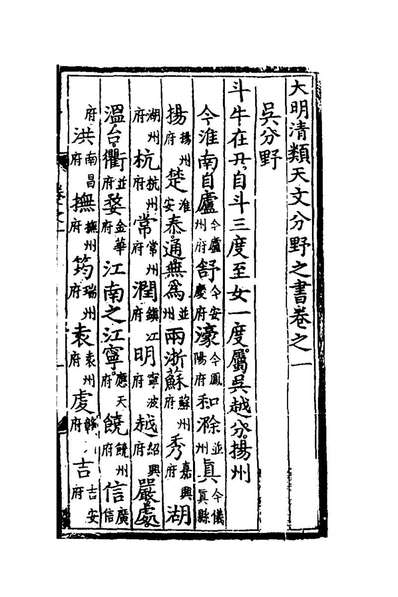 大明清類天文分野之書卷之一
吳分野
斗牛在丑自斗三度至女一度屬吳越分揚州
今淮南自廬今廬州府舒今安慶府濠今鳳陽府和滁並州真今儀真縣
揚揚州府楚淮安泰通無為並州兩浙蘇蘇州府秀嘉興府湖
湖州府杭杭州府常常州府潤鎮江府明寧波府越紹興府嚴處
溫台衢並府婺金華府江南之江寧應天府饒饒州府信廣信
府洪南昌府撫撫州府筠瑞州府袁袁州府虔府吉吉安府
卷之一